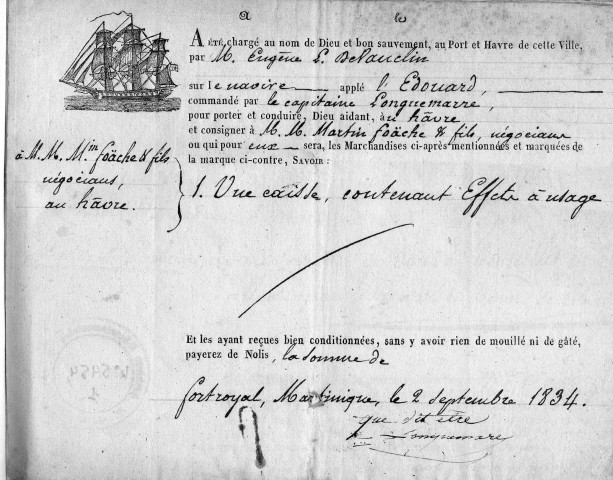 a le
A ÉTÉ chargé au nom de Dieu et bon sauvement, au Port et Havre de cette Ville,
par M. Eugène L. Delauclin
sur le navire applé l'Edouard,
commandé par le capitaine Longuemarre,
pour porter et conduire, Dieu aidant, au hâvre
et consigner à M. M. Martin foäche & fils, négocians
ou qui pour eux sera, les Marchandises ci-après mentionnées et marquées de
la marque ci-contre, SAVOIR :
à M. M. Min foäche & fils
négocians,
au hâvre.
1. Une caisse, contenant Effets à usage
Et les ayant reçues bien conditionnées, sans y avoir rien de mouillé ni de gâté,
payerez de Nolis, la somme de
fortroyal, Martinique, le 2 septembre 1834.
que dit être
Longuemare